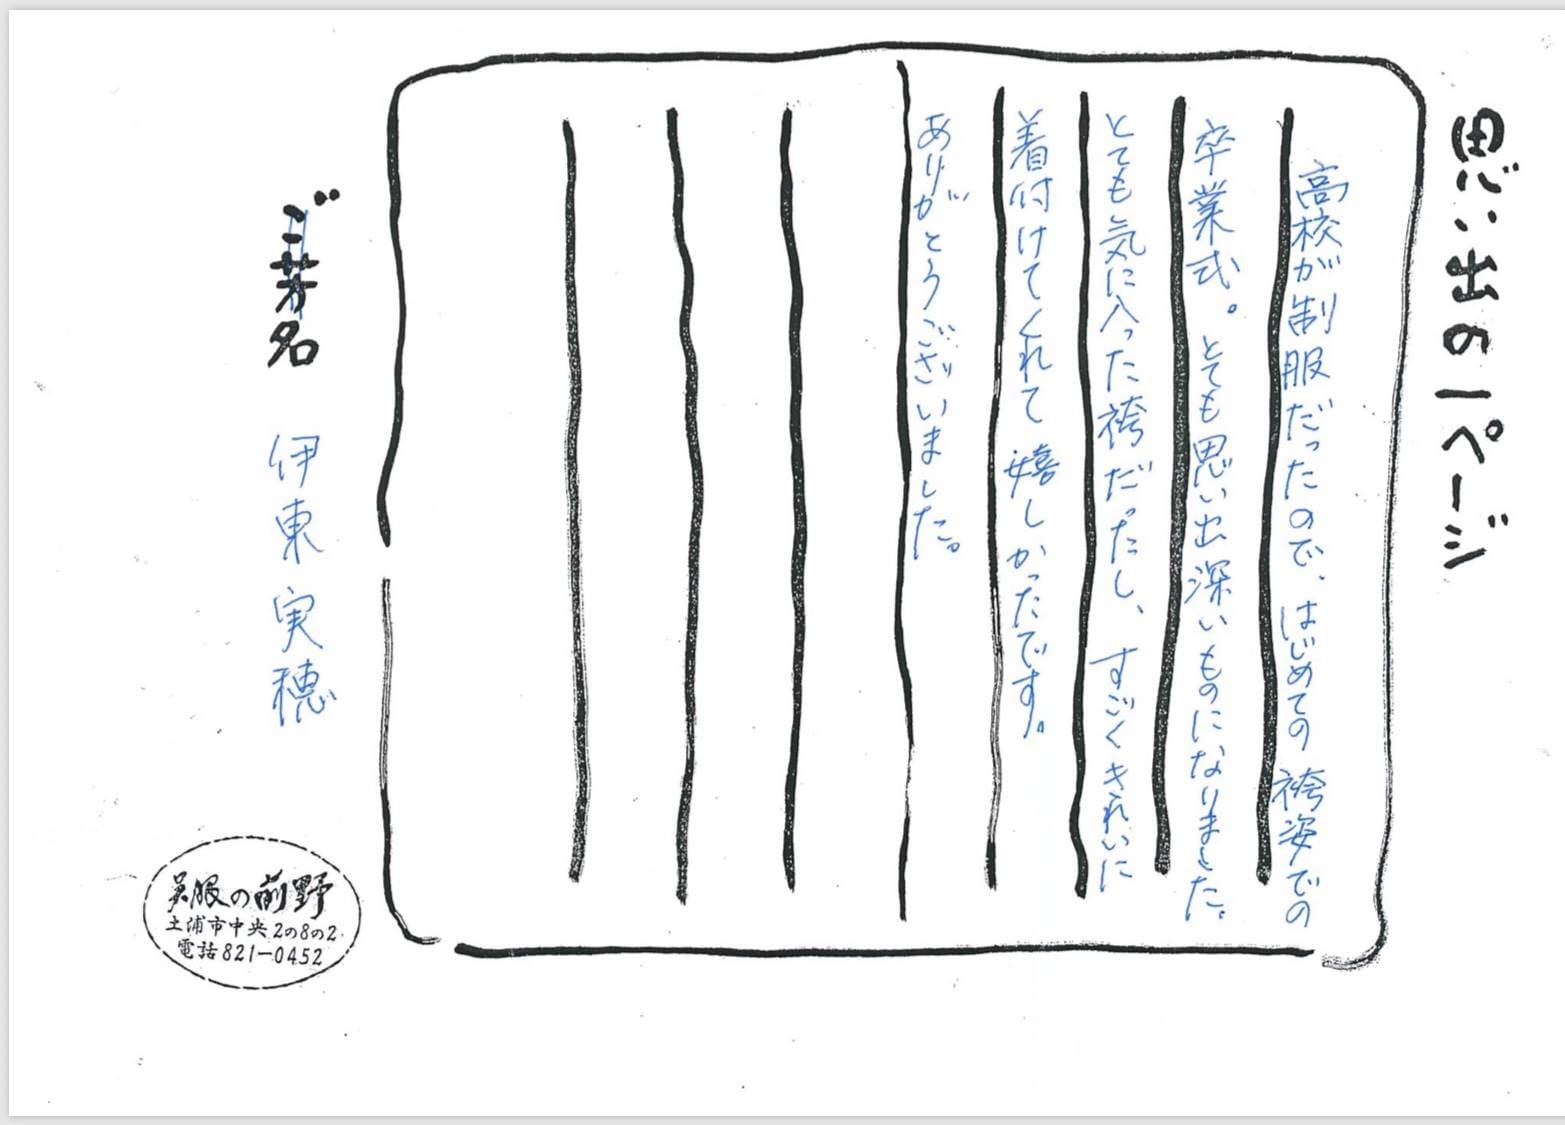 思い出の一ページ
高校が制服だったので、はじめての袴姿での
卒業式。とても思い出深いものになりました。
とても気に入った袴だったし、すごくきれいに
着付けてくれて嬉しかったです。
ありがとうございました。
ご芳名 伊東実穂
呉服の前野
土浦市中央2の8の2
電話821-0452